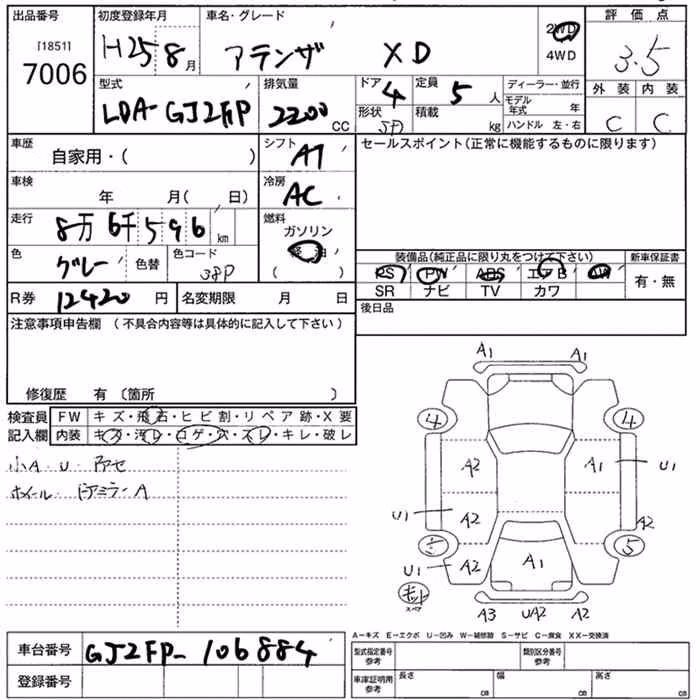 出品番号 初度登録年月 車名・グレード 2WD 評価点
[1851] H25 8月 アテンザ XD 4WD 3.5
7006
型式 排気量 ドア 定員 ディーラー・並行 外装 内装
LDA-GJ2FP 2200 CC 4 5人 モデル年式 年
形状 積載 kg ハンドル 左・右 C C
車歴 シフト セールスポイント(正常に機能するものに限ります)
自家用・( ) AT
車検 冷房
年 月( 日) AC
走行 燃料
8万6千596 km ガソリン
軽油
色 色替 色コード 装備品(純正品に限り丸をつけて下さい) 新車保証書
グレー 38P PS PW ABS エアB AW 有・無
R券 12420 円 名変期限 月 日 SR ナビ TV カワ
注意事項申告欄 (不具合内容等は具体的に記入して下さい) 後日品
修復歴 有 (箇所 )
検査員 FW キズ・飛石・ヒビ割・リペア跡・X要
記入欄 内装 キズ・汚レ・コゲ・穴・スレ・キレ・破レ
小A・U・アセ
ホイール・ドアミラーA
A1 A1
4 4
A2 A1 U1
U1 A2 A2
5
U1 A2 A1
スペア
A3 UA2 A2
A-キズ E-エクボ U-凹み W-補修跡 S-サビ C-腐食 XX-交換済
車台番号 GJ2FP-106884 型式指定番号 参考 類別区分番号 参考
登録番号 車庫証明用 参考 長さ cm 幅 cm 高さ cm